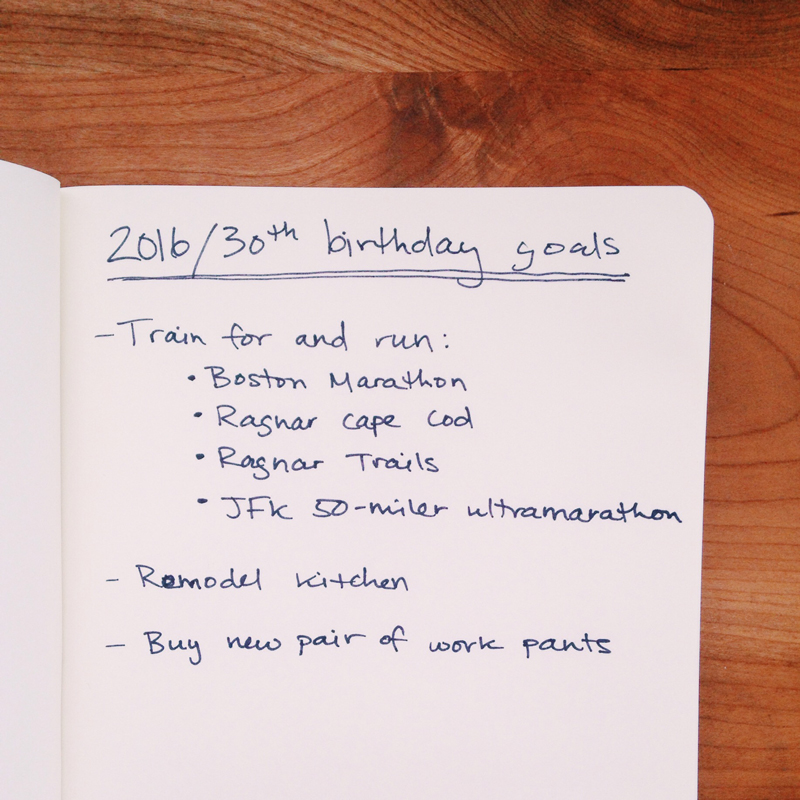 2016/30th birthday goals
- Train for and run:
• Boston Marathon
• Ragnar Cape Cod
• Ragnar Trails
• JFK 50-miler ultramarathon
- Remodel kitchen
- Buy new pair of work pants